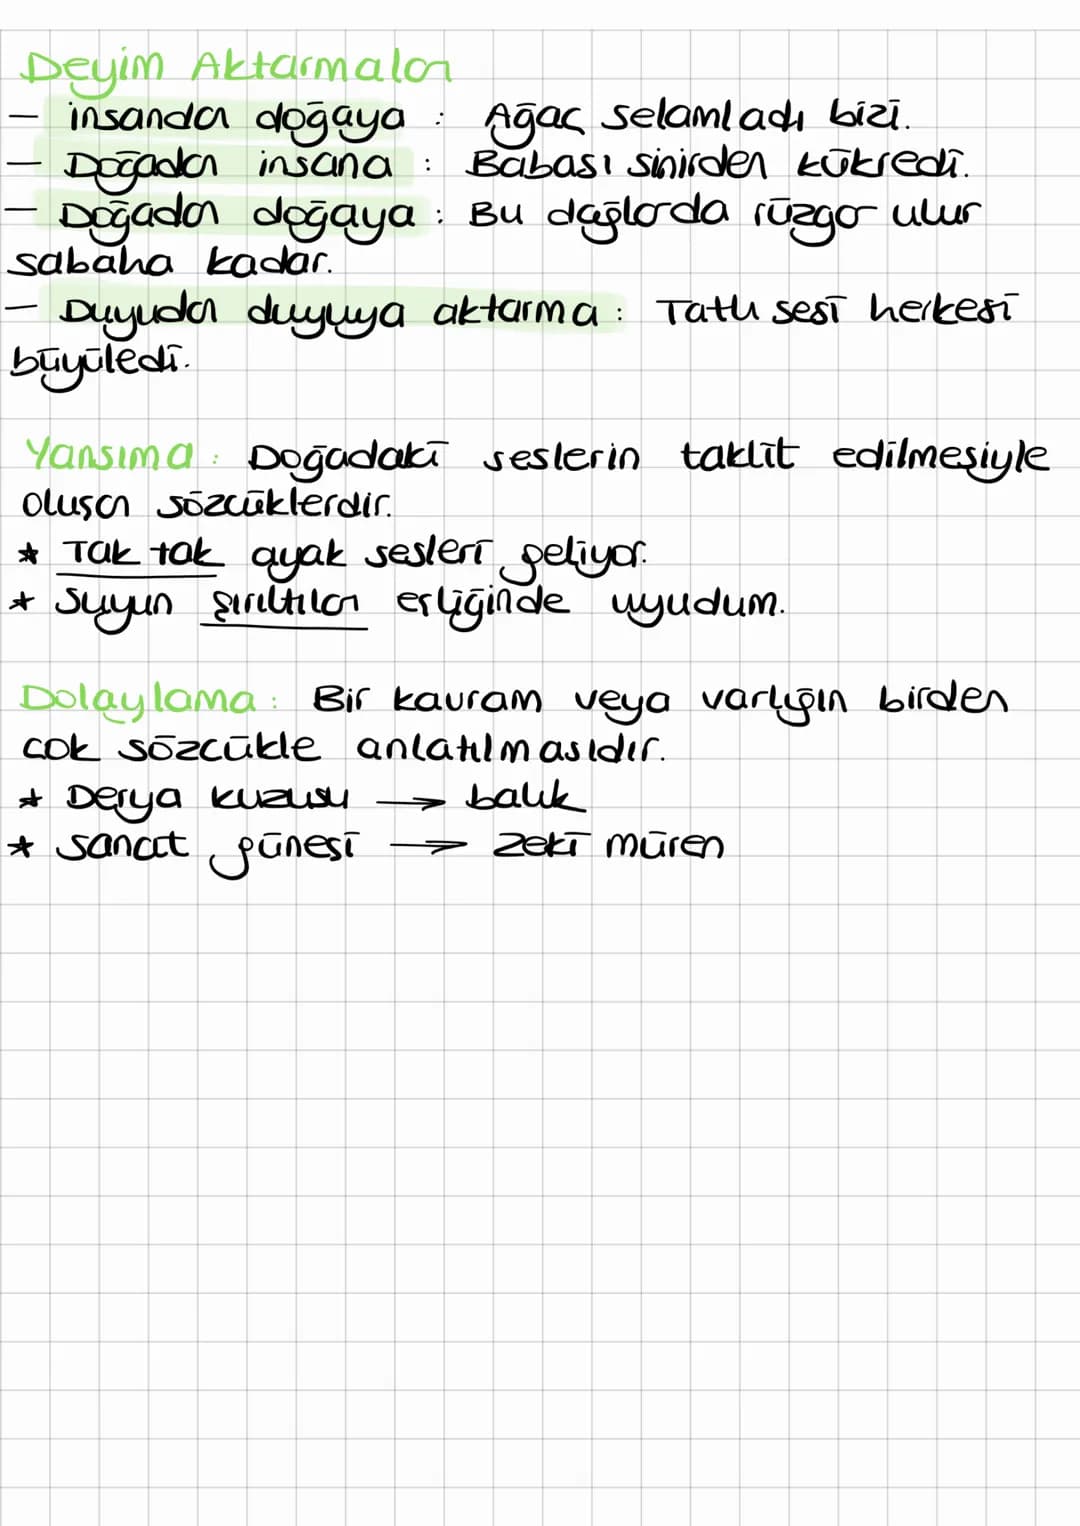 Deyim Aktarmaları
– insandan doğaya : Ağaç selamladı bizi.
– Doğadan insana : Babası sinirden kükredi.
– Doğadan doğaya : Bu dağlarda rüzgar ulur
sabaha kadar.
– Duyudan duyuya aktarma : Tatlı sesi herkesi
büyüledi.
Yansıma : Doğadaki seslerin taklit edilmesiyle
oluşan sözcüklerdir.
* Tak tak ayak sesleri geliyor.
* Suyun şırıltıları eşliğinde uyudum.
Dolaylama : Bir kavram veya varlığın birden
çok sözcükle anlatılmasıdır.
* Derya kuzusu → balık
* Sanat güneşi → Zeki müren